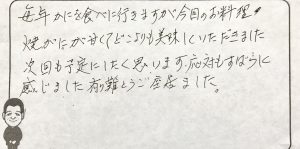 毎年かにを食べに行きますが今回のお料理
焼がにが甘くてどこよりも美味しくいただきました
次回も予定にしたく思います。応対もすばらに
感じました有難とうご座居ました。